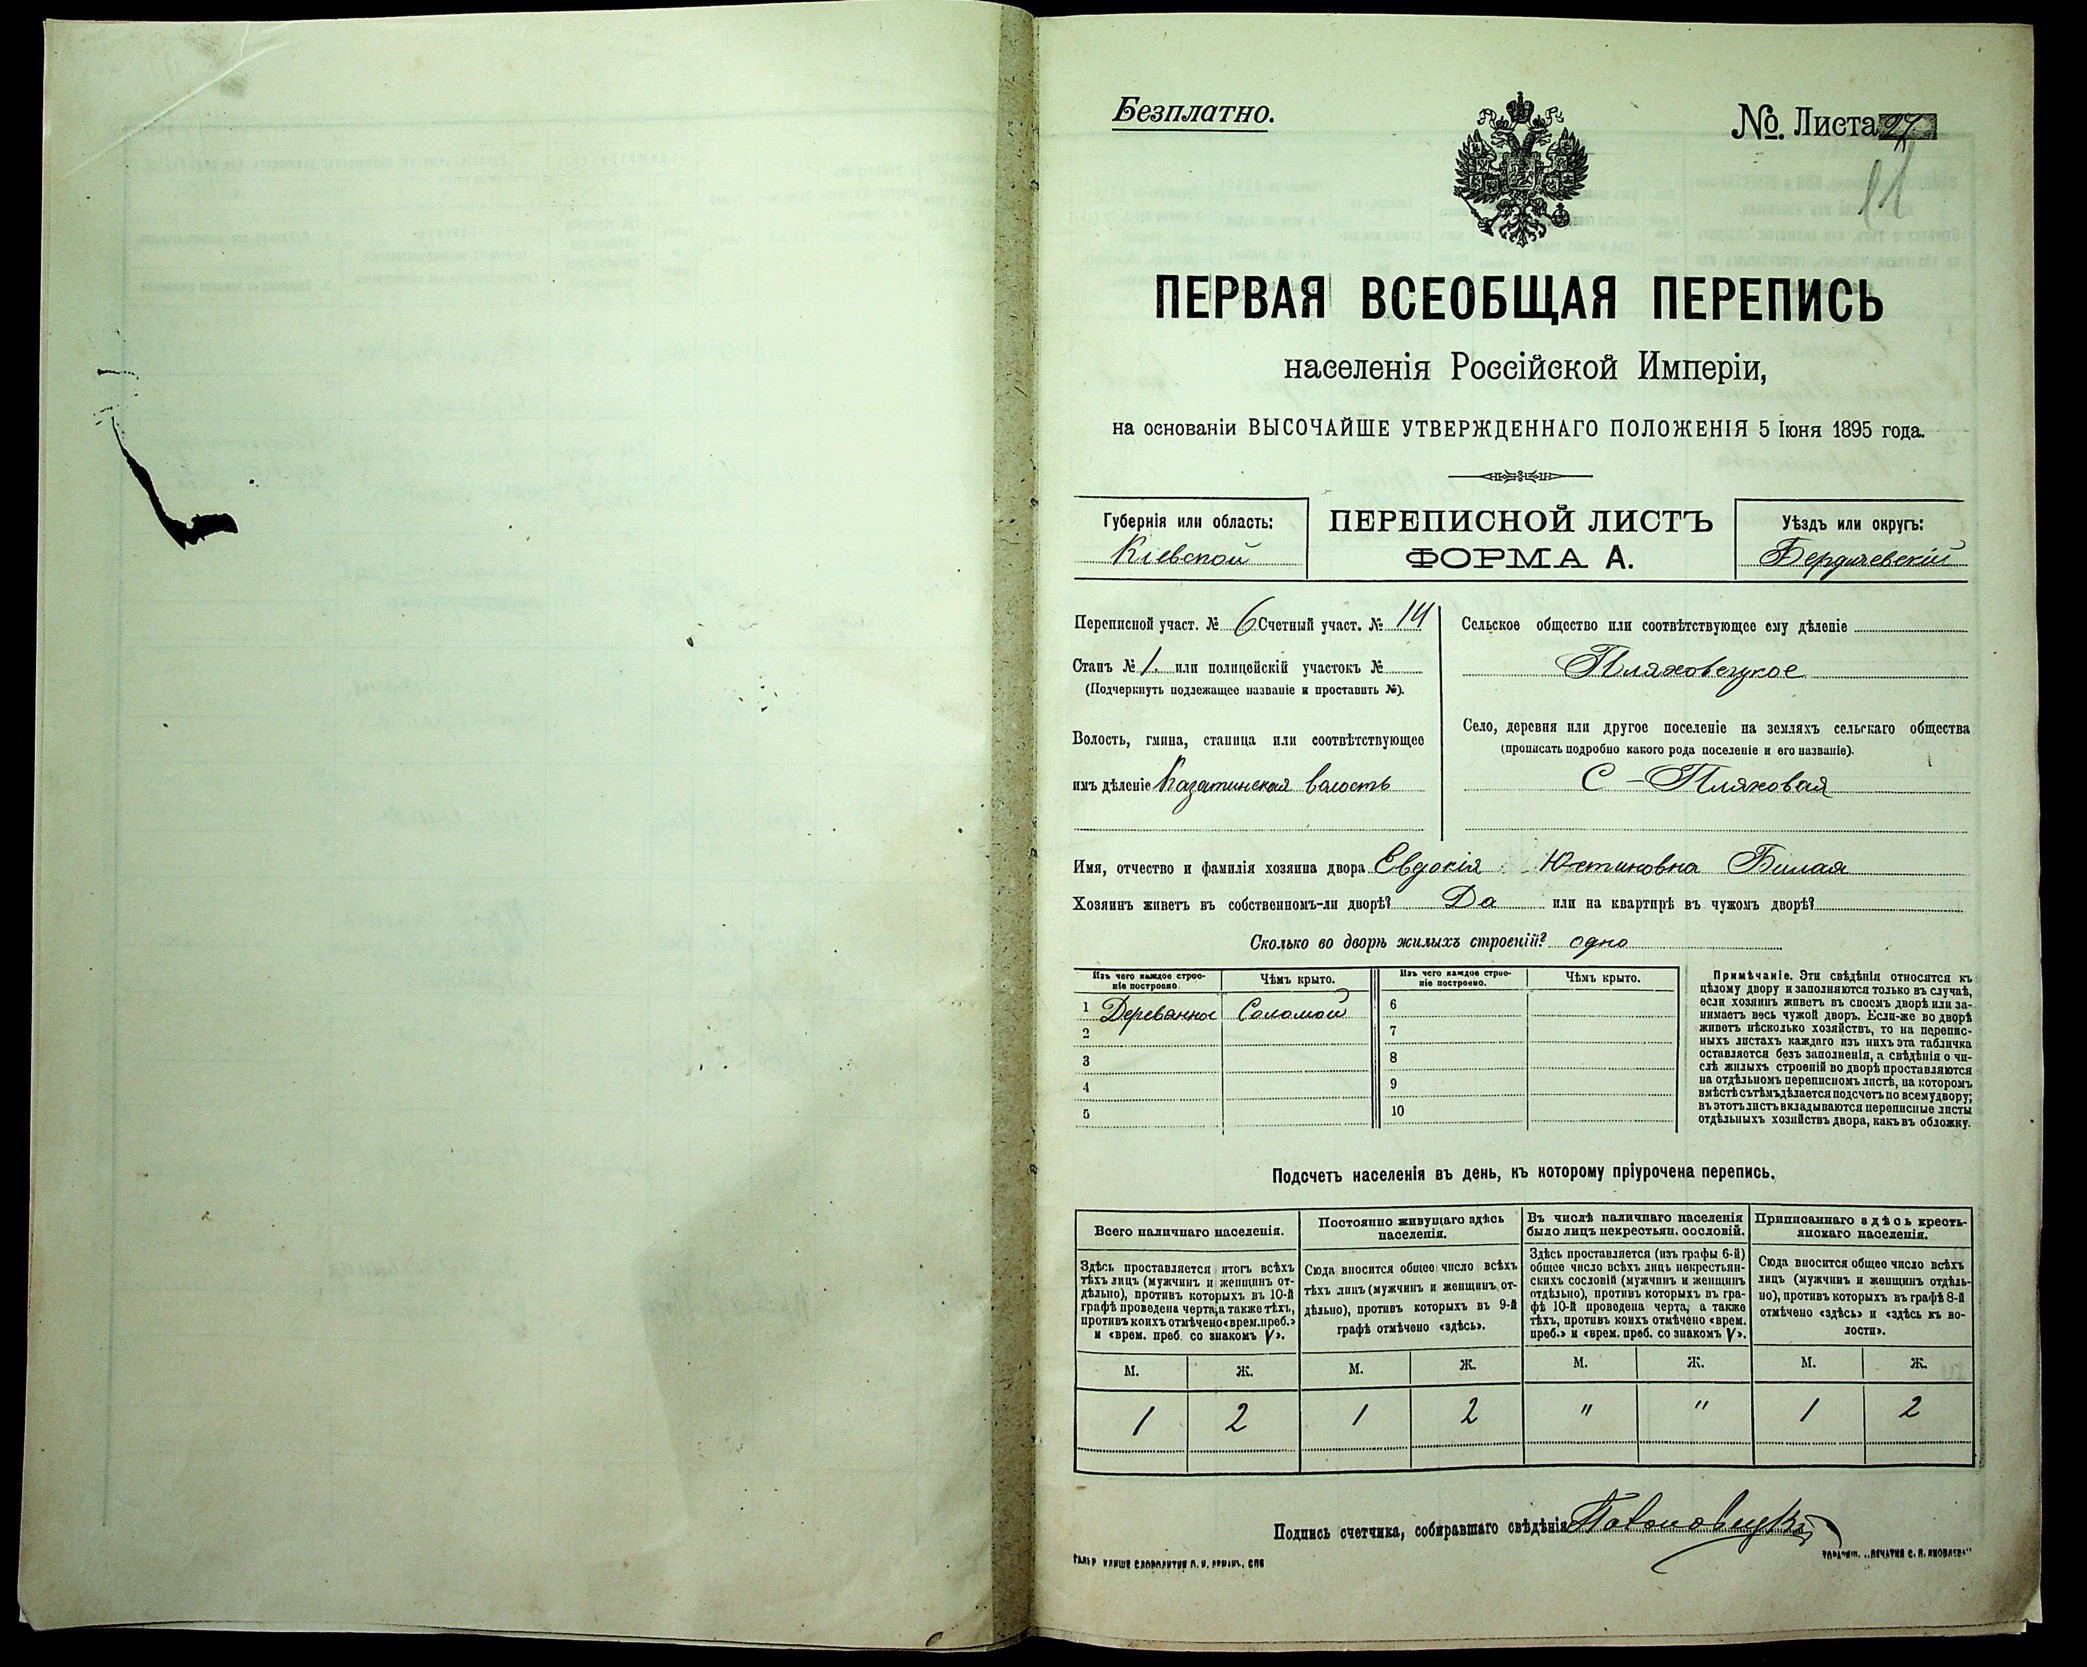 Безплатно.
№. Листа 27
ПЕРВАЯ ВСЕОБЩАЯ ПЕРЕПИСЬ
населенія Россійской Имперіи,
на основаніи ВЫСОЧАЙШЕ УТВЕРЖДЕННАГО ПОЛОЖЕНІЯ 5 Іюня 1895 года.
Губернія или область:
Кіевской
ПЕРЕПИСНОЙ ЛИСТЪ
ФОРМА А.
Уѣздъ или округъ:
Бердичевскій
Переписной участ. № 6 Счетный участ. № 14
Станъ № 1. или полицейскій участокъ №
(Подчеркнуть подлежащее названіе и проставить №).
Волость, гмина, станица или соотвѣтствующее
имъ дѣленіе Казатинская волость
Сельское общество или соотвѣтствующее ему дѣленіе
Пляховецкое
Село, деревня или другое поселеніе на земляхъ сельскаго общества
(прописать подробно какого рода поселеніе и его названіе).
С - Пляховая
Имя, отчество и фамилія хозяина двора Евдокія Юстиновна Билая
Хозяинъ живетъ въ собственномъ-ли дворѣ? Да или на квартирѣ въ чужомъ дворѣ?
Сколько во дворѣ жилыхъ строеній? одно
Изъ чего каждое строе-
ніе построено.
Чѣмъ крыто.
Изъ чего каждое строе-
ніе построено.
Чѣмъ крыто.
1 Деревянное Соломой 6
2 7
3 8
4 9
5 10
Примѣчаніе. Эти свѣдѣнія относятся къ
цѣлому двору и заполняются только въ случаѣ,
если хозяинъ живетъ въ своемъ дворѣ или за-
нимаетъ весь чужой дворъ. Если-же во дворѣ
живетъ нѣсколько хозяйствъ, то на перепис-
ныхъ листахъ каждаго изъ нихъ эта табличка
оставляется безъ заполненія, а свѣдѣнія о чи-
слѣ жилыхъ строеній во дворѣ проставляются
на отдѣльномъ переписномъ листѣ, на которомъ
вмѣстѣ съ тѣмъ дѣлается подсчетъ по всему двору;
въ этотъ листъ вкладываются переписные листы
отдѣльныхъ хозяйствъ двора, какъ въ обложку.
Подсчетъ населенія въ день, къ которому пріурочена перепись.
Всего наличнаго населенія.
Здѣсь проставляется итогъ всѣхъ
тѣхъ лицъ (мужчинъ и женщинъ от-
дѣльно), противъ которыхъ въ 10-й
графѣ проведена черта, а также тѣхъ,
противъ коихъ отмѣчено «врем. преб.»
и «врем. преб. со знакомъ V».
Постоянно живущаго здѣсь
населенія.
Сюда вносится общее число всѣхъ
тѣхъ лицъ (мужчинъ и женщинъ от-
дѣльно), противъ которыхъ въ 9-й
графѣ отмѣчено «здѣсь».
Въ числѣ наличнаго населенія
было лицъ некрестьян. сословій.
Здѣсь проставляется (изъ графы 6-й)
общее число всѣхъ лицъ некрестьян-
скихъ сословій (мужчинъ и женщинъ
отдѣльно), противъ которыхъ въ гра-
фѣ 10-й проведена черта, а также
тѣхъ, противъ коихъ отмѣчено «врем.
преб.» и «врем. преб. со знакомъ V».
Приписаннаго здѣсь кресть-
янскаго населенія.
Сюда вносится общее число всѣхъ
лицъ (мужчинъ и женщинъ отдѣль-
но), противъ которыхъ въ графѣ 8-й
отмѣчено «здѣсь» и «здѣсь въ во-
лости».
М. Ж. М. Ж. М. Ж. М. Ж.
1 2 1 2 " " 1 2
Подпись счетчика, собиравшаго свѣдѣнія